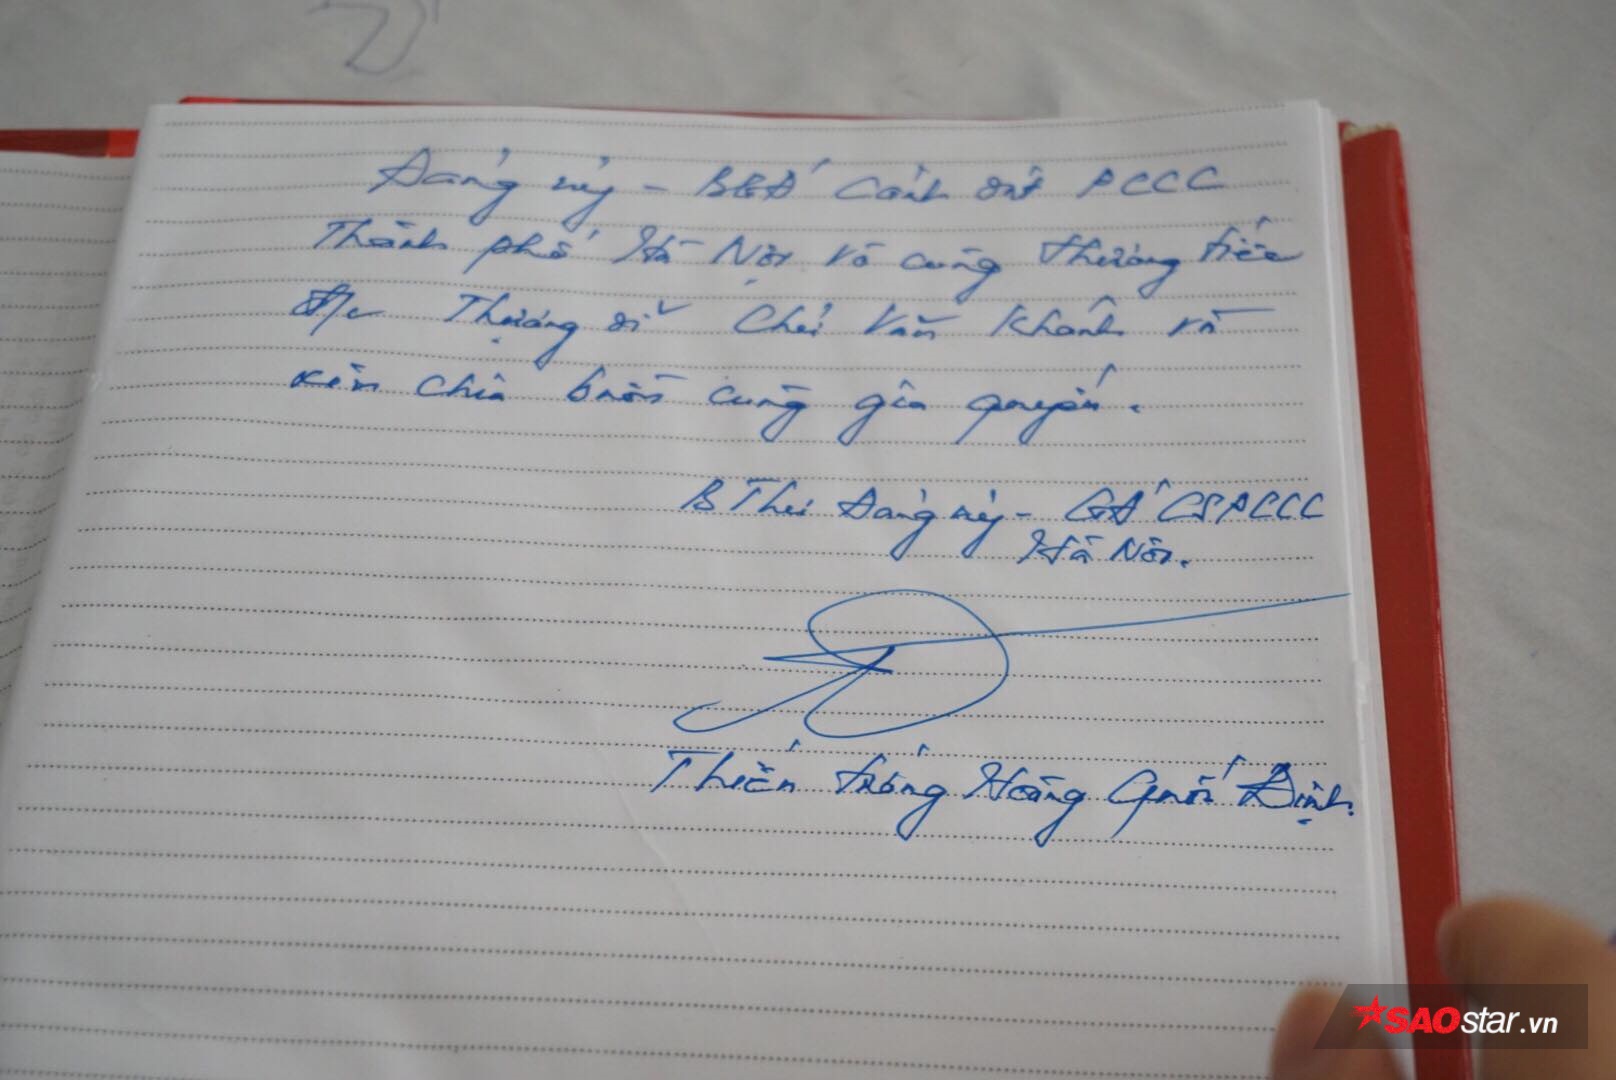 Đảng ủy - BGĐ Cảnh sát PCCC
Thành phố Hà Nội vô cùng thương tiếc
đ/c Thượng sĩ Chử Văn Khánh và
xin chia buồn cùng gia quyến.
B Thư Đảng ủy - GĐ CSPCCC
Hà Nội.
Thiếu tướng Hoàng Quốc Định.
SAOstar.vn